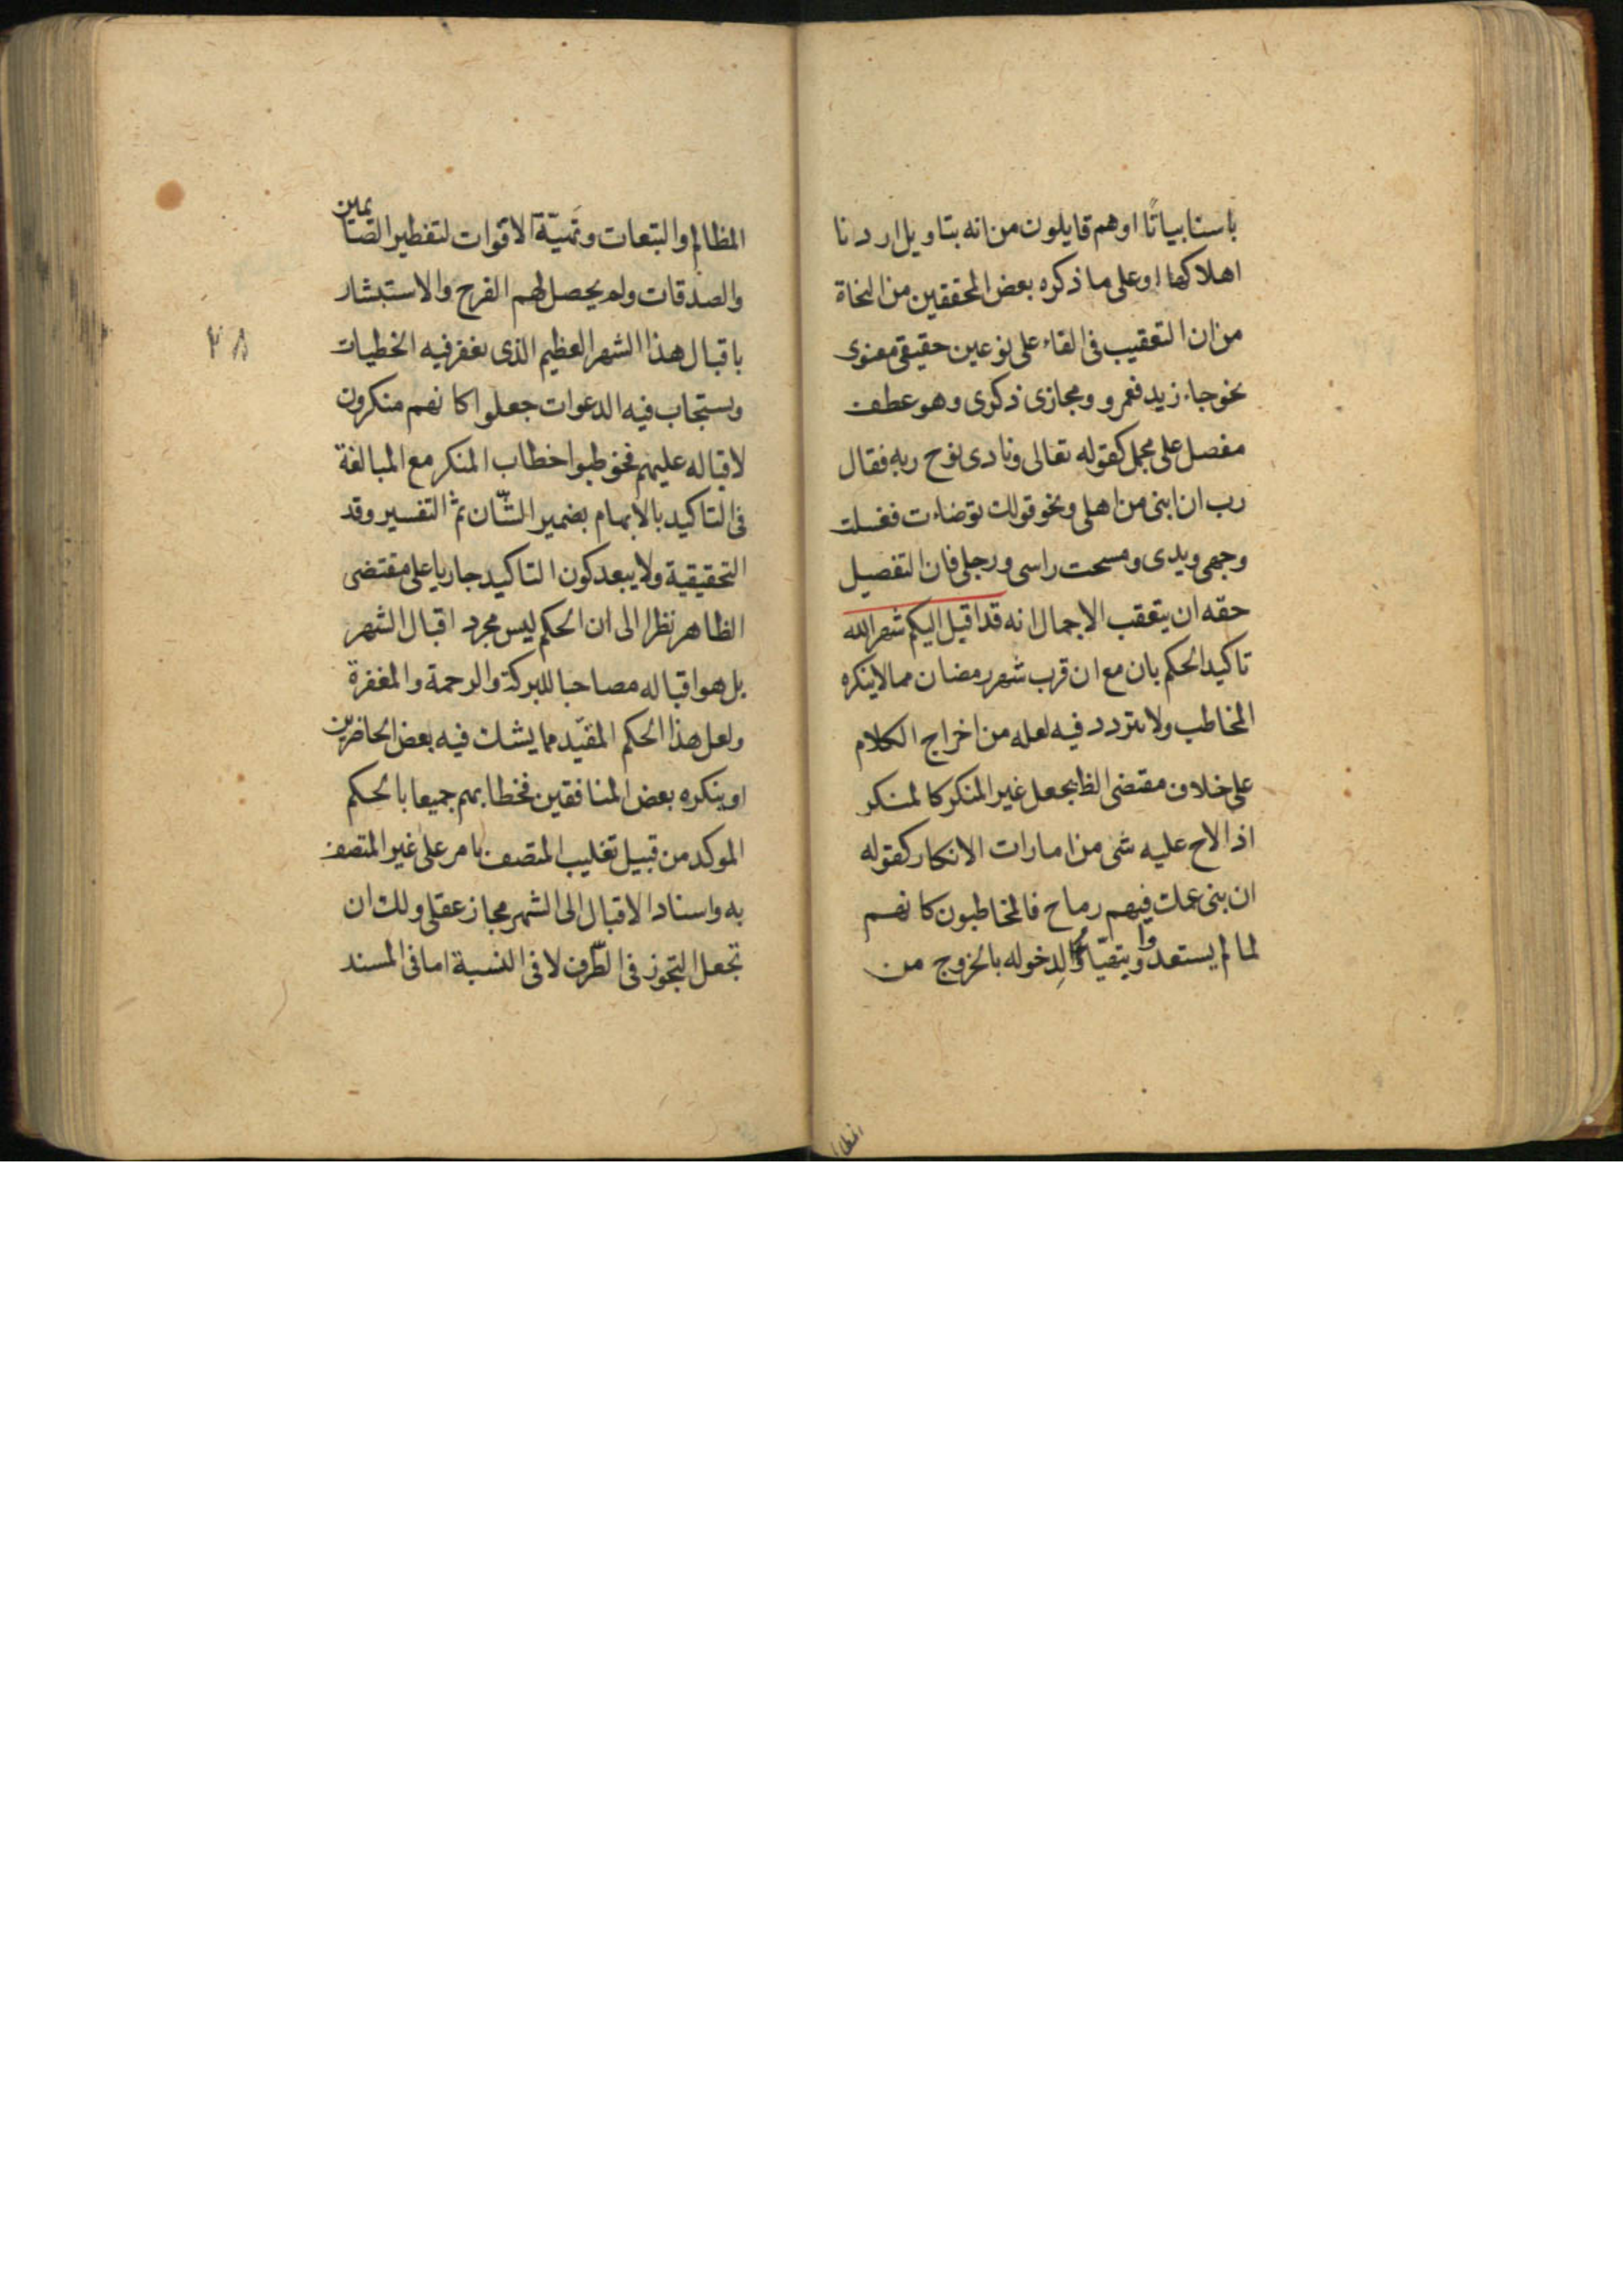 باسنا بياتًا او هم قايلون من انه بتاويل اردنا
اهلاكها او على ما ذكره بعض المحققين من النحاة
من ان التعقيب فى الفاء على نوعين حقيقى معنوى
نحو جاء زيد فعمرو ومجازى ذكرى وهو عطف
مفصل على مجمل كقوله تعالى ونادى نوح ربه فقال
رب ان ابنى من اهلى ونحو قولك توضاءت فغسلت
وجهى ويدى ومسحت راسى ورجلى فان التفصيل
حقه ان يتعقب الاجمال انه قد اقبل اليكم شهر الله
تاكيد الحكم بان مع ان قرب شهر رمضان مما لا ينكره
المخاطب ولا يتردد فيه لعله من اخراج الكلام
على خلاف مقتضى الظ بجعل غير المنكر كالمنكر
اذا لاح عليه شى من امارات الانكار كقوله
ان بنى عمك فيهم رماح فالمخاطبون كانهم
لما لم يستعدوا ويتهيّاؤا لدخوله بالخروج من
المظالم
المظالم والتبعات وتهيّة الاقوات لتفطير الصّائمين
والصدقات ولم يحصل لهم الفرح والاستبشار
باقبال هذا الشهر العظيم الذى يغفر فيه الخطيات
ويستجاب فيه الدعوات جعلوا كانهم منكرون
لاقباله عليهم فخوطبوا خطاب المنكر مع المبالغة
فى التاكيد بالابهام بضمير الشّان ثمّ التفسير وقد
التحقيقية ولا يبعد كون التاكيد جاريا على مقتضى
الظاهر نظرا الى ان الحكم ليس مجرد اقبال الشهر
بل هو اقباله مصاحبا للبركة والرحمة والمغفرة
ولعل هذا الحكم المقيّد مما يشك فيه بعض الحاضرين
او ينكره بعض المنافقين فخطابهم جميعا بالحكم
الموكد من قبيل تغليب المتصف بامر على غير المتصف
به واسناد الاقبال الى الشهر مجاز عقلى ولك ان
تجعل التجوز فى الطّرف لا فى النسبة اما فى المسند